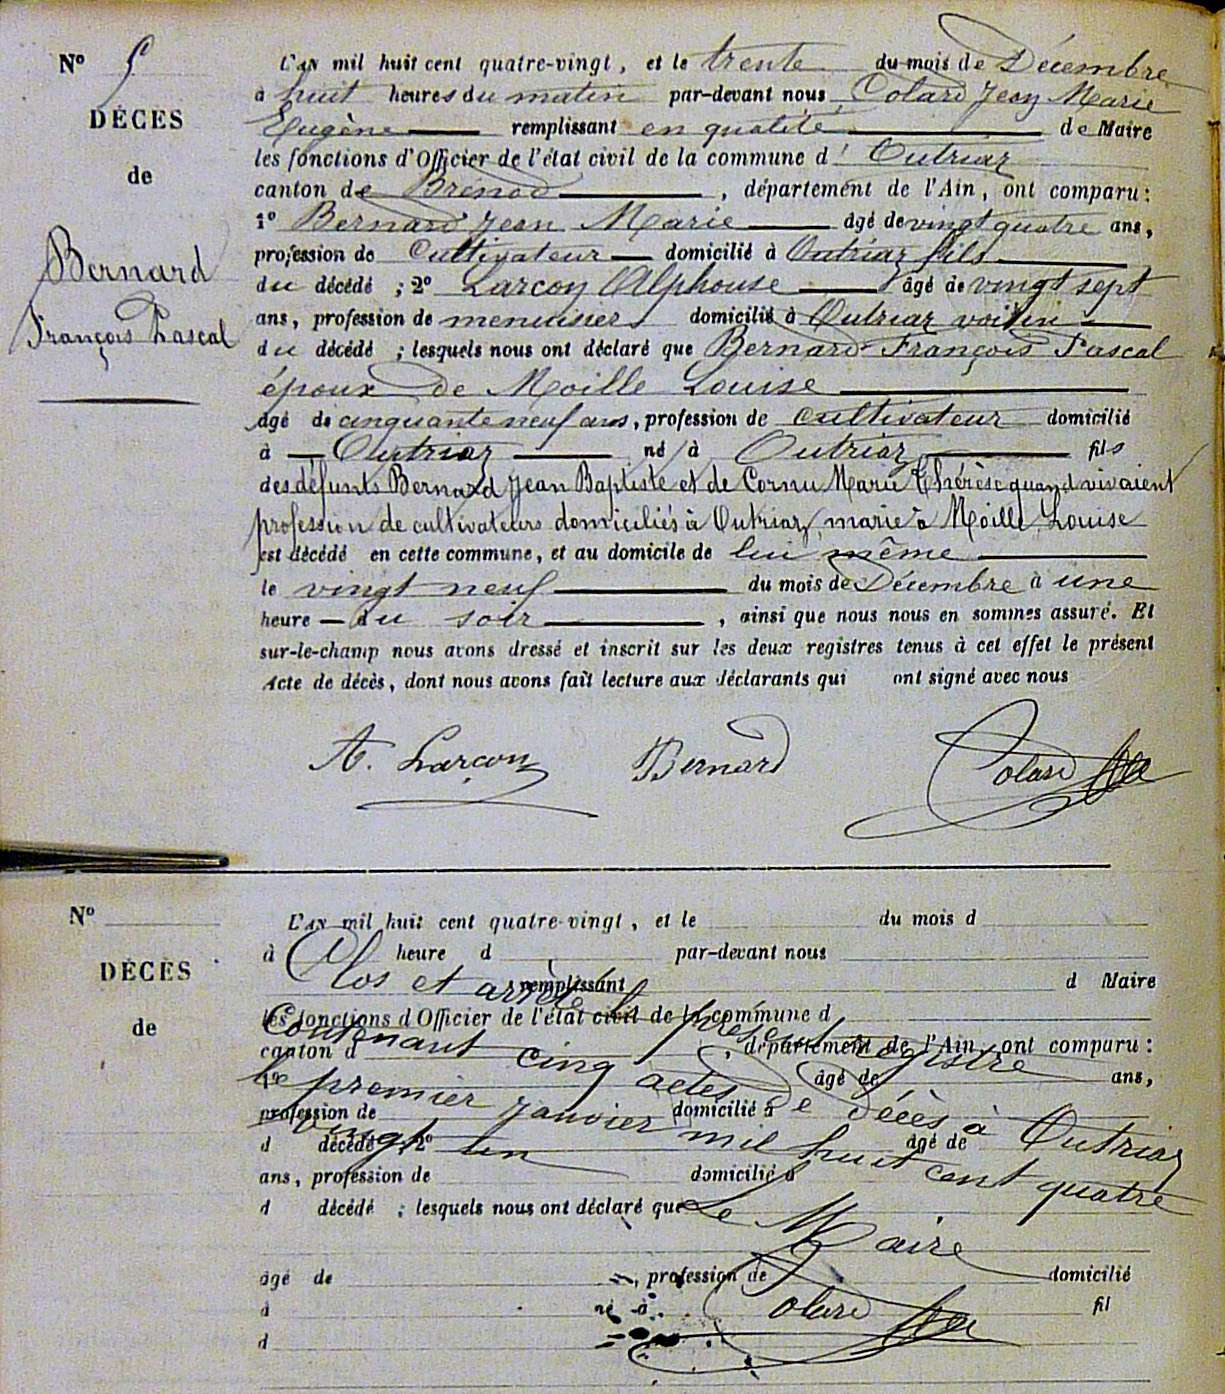 N° 5
DÉCÈS
de
Bernard
François Pascal
L'AN mil huit cent quatre-vingt, et le trente du mois de Décembre
à huit heures du matin par-devant nous Coland Jean Marie
Eugène remplissant en qualité de Maire
les fonctions d'Officier de l'état civil de la commune d' Outriaz
canton de Brénod, département de l'Ain, ont comparu :
1° Bernard Jean Marie âgé de vingt quatre ans,
profession de Cultivateur domicilié à Outriaz fils
du décédé ; 2° Larçon Alphonse âgé de vingt sept
ans, profession de menuisier domicilié à Outriaz voisin
du décédé ; lesquels nous ont déclaré que Bernard François Pascal
époux de Moille Louise
âgé de cinquante neuf ans, profession de cultivateur domicilié
à Outriaz né à Outriaz fils
des défunts Bernard Jean Baptiste et de Cornu Marie Thérèse quand vivaient
profession de cultivateurs domiciliés à Outriaz, marié à Moille Louise
est décédé en cette commune, et au domicile de lui même
le vingt neuf du mois de Décembre à une
heure du soir, ainsi que nous nous en sommes assuré. Et
sur-le-champ nous avons dressé et inscrit sur les deux registres tenus à cet effet le présent
Acte de décès, dont nous avons fait lecture aux déclarants qui ont signé avec nous
A. Larçon Bernard Coland
N°
DÉCÈS
de
L'AN mil huit cent quatre-vingt, et le du mois d
à heure d par-devant nous
remplissant d Maire
les fonctions d'Officier de l'état civil de la commune d
canton d , département de l'Ain, ont comparu :
1° âgé de ans,
profession de domicilié à
d décédé ; 2° âgé de
ans, profession de domicilié à
d décédé ; lesquels nous ont déclaré que
âgé de , profession de domicilié
à né à fil
d
Clos et arrêté le présent registre
Contenant cinq actes de décès à Outriaz
le premier janvier mil huit cent quatre
vingt un
Le Maire
Coland